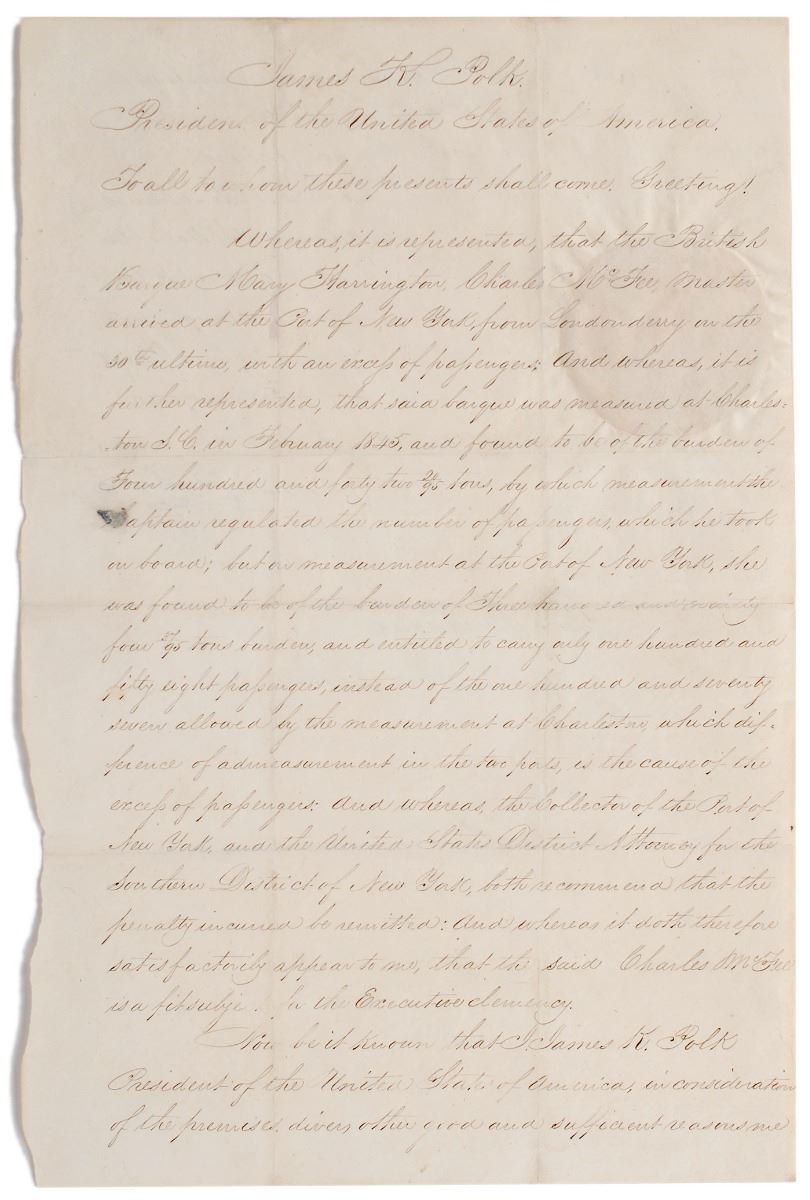 James K. Polk.
President of the United States of America.
To all to whom these presents shall come. Greeting!
Whereas, it is represented, that the British
Barque Mary Harrington, Charles McFee, master
arrived at the Port of New York, from Londonderry on the
30th ultimo, with an excess of passengers; And whereas, it is
further represented, that said barque was measured at Charles=
ton S.C. in February 1845, and found to be of the burden of
Four hundred and forty two 95 tons, by which measurement the
Captain regulated the number of passengers, which he took
on board; but on measurement at the Port of New York, she
was found to be of the burden of Three hundred and ninety
four 95 tons burden, and entitled to carry only one hundred and
fifty eight passengers, instead of the one hundred and seventy
seven allowed by the measurement at Charleston, which dif-
ference of admeasurement in the two ports, is the cause of the
excess of passengers: And whereas, the Collector of the Port of
New York, and the United States District Attorney for the
Southern District of New York, both recommend that the
penalty incurred be remitted: And whereas it doth therefore
satisfactorily appear to me, that the said Charles McFee
is a fit subject for the Executive clemency.
Now be it known that I, James K. Polk
President of the United States of America, in consideration
of the premises, divers other good and sufficient reasons me